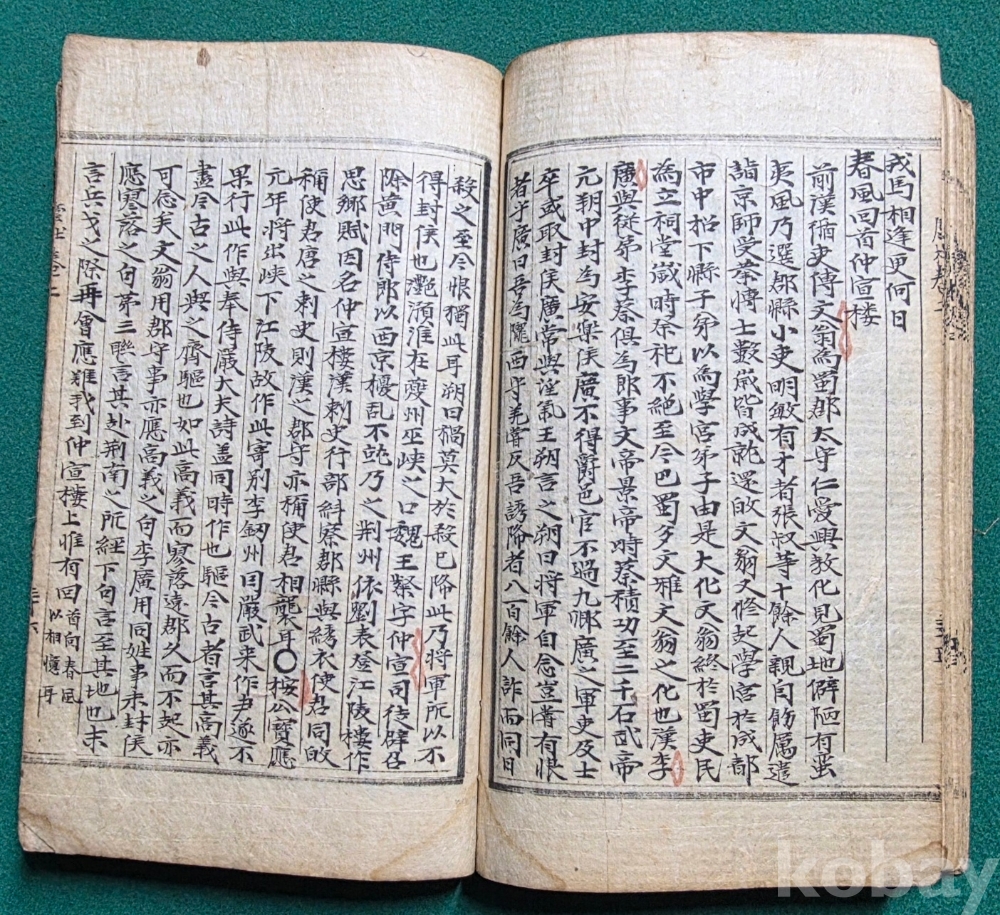 戎馬相逢更何日
春風回首仲宣楼
前漢循吏傳文翁為蜀郡太守仁愛興教化見蜀地僻陋有蛮
夷風乃選郡縣小吏明敏有才者張汉等十餘人親自飭厲遣
詣京師受業博士數歲皆成就还故文翁又修起學宮於成都
市中招下縣子弟以為學宮弟子由是大化文翁終於蜀吏民
為立祠堂歲時祭祀不絕至今巴蜀多文雅文翁之化也漢李
廣與從弟李蔡俱為郎事文帝景帝時蔡積功至二千石武帝
元朔中封為安樂侯廣不得爵邑官不過九卿廣之軍吏及士
卒或取封侯廣常與望氣王朔言之朔曰將軍自念豈嘗有恨
者乎廣曰吾為隴西守羌嘗反吾誘降者八百餘人詐而同日
殺之至今恨獨此耳朔曰禍莫大於殺已降此乃將軍所以不
得封侯也灩澦淮在夔州巫峽之口魏王粲字仲宣司徒辟召
除黃門侍郎以西京擾乱不就乃之荆州依劉表登江陵樓作
思鄉賦因名仲宣樓漢刺史行部糾察郡縣與綉衣使君同故
稱使君唐之刺史則漢之郡守亦稱使君相襲耳○按公寶應
元年將出峽下江陵故作此寄別李劒州因嚴武来作尹遂不
果行此作與奉侍嚴大夫詩盖同時作也驅今古者言其高義
盡今古之人與之齊驅也如此高義而寥落遠郡久而不起亦
可念矣文翁用郡守事亦應高義之句李廣用同姓事未封侯
應寥落之句第三聯言其赴荆南之所經下句言至其地也末
言兵戈之際再會應難我到仲宣樓上惟有回首向春風以相憶耳
kobay